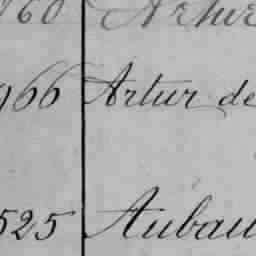 160 Artur
966 Artur de
525 Aubau